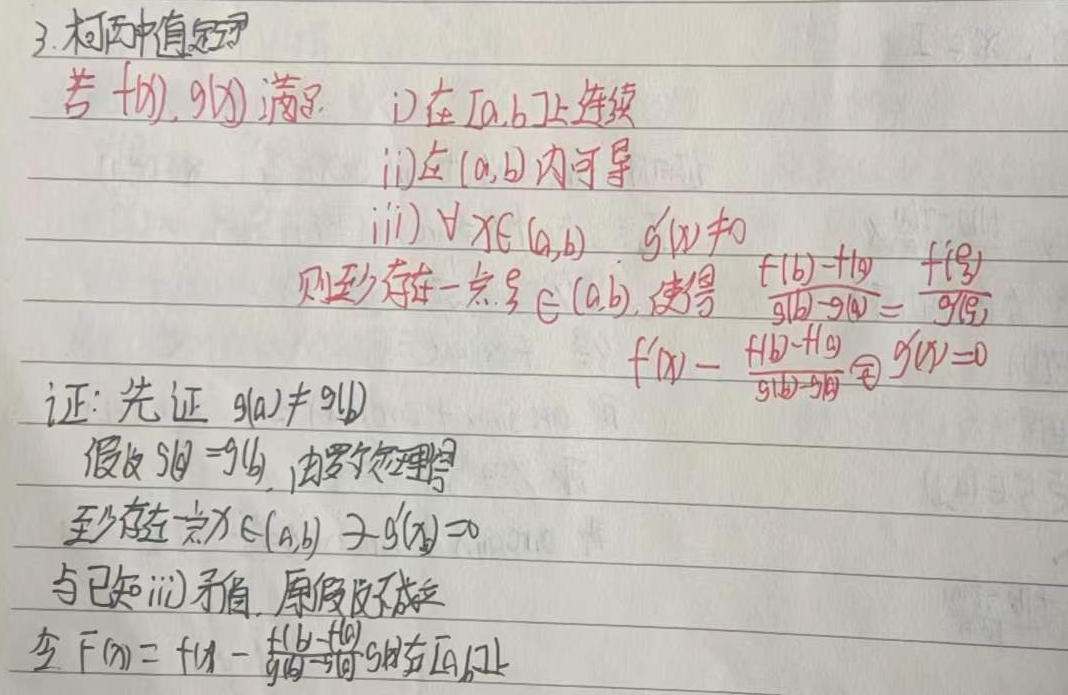 3.柯西中值定理
若 f(x),g(x)满足 i)在[a,b]上连续
ii)在(a,b)内可导
iii)∀x∈(a,b). g'(x)≠0
则至少存在一点ξ∈(a,b),使得 \frac{f(b)-f(a)}{g(b)-g(a)} = \frac{f'(ξ)}{g'(ξ)}
f'(x) - \frac{f(b)-f(a)}{g(b)-g(a)} g'(x)=0
证:先证 g(a)≠g(b)
假设 g(a)=g(b),由罗尔定理得
至少存在一点x∈(a,b) ∋ g'(x)=0
与已知iii)矛盾,原假设不成立
令 F(x)= f(x) - \frac{f(b)-f(a)}{g(b)-g(a)} g(x)在[a,b]上